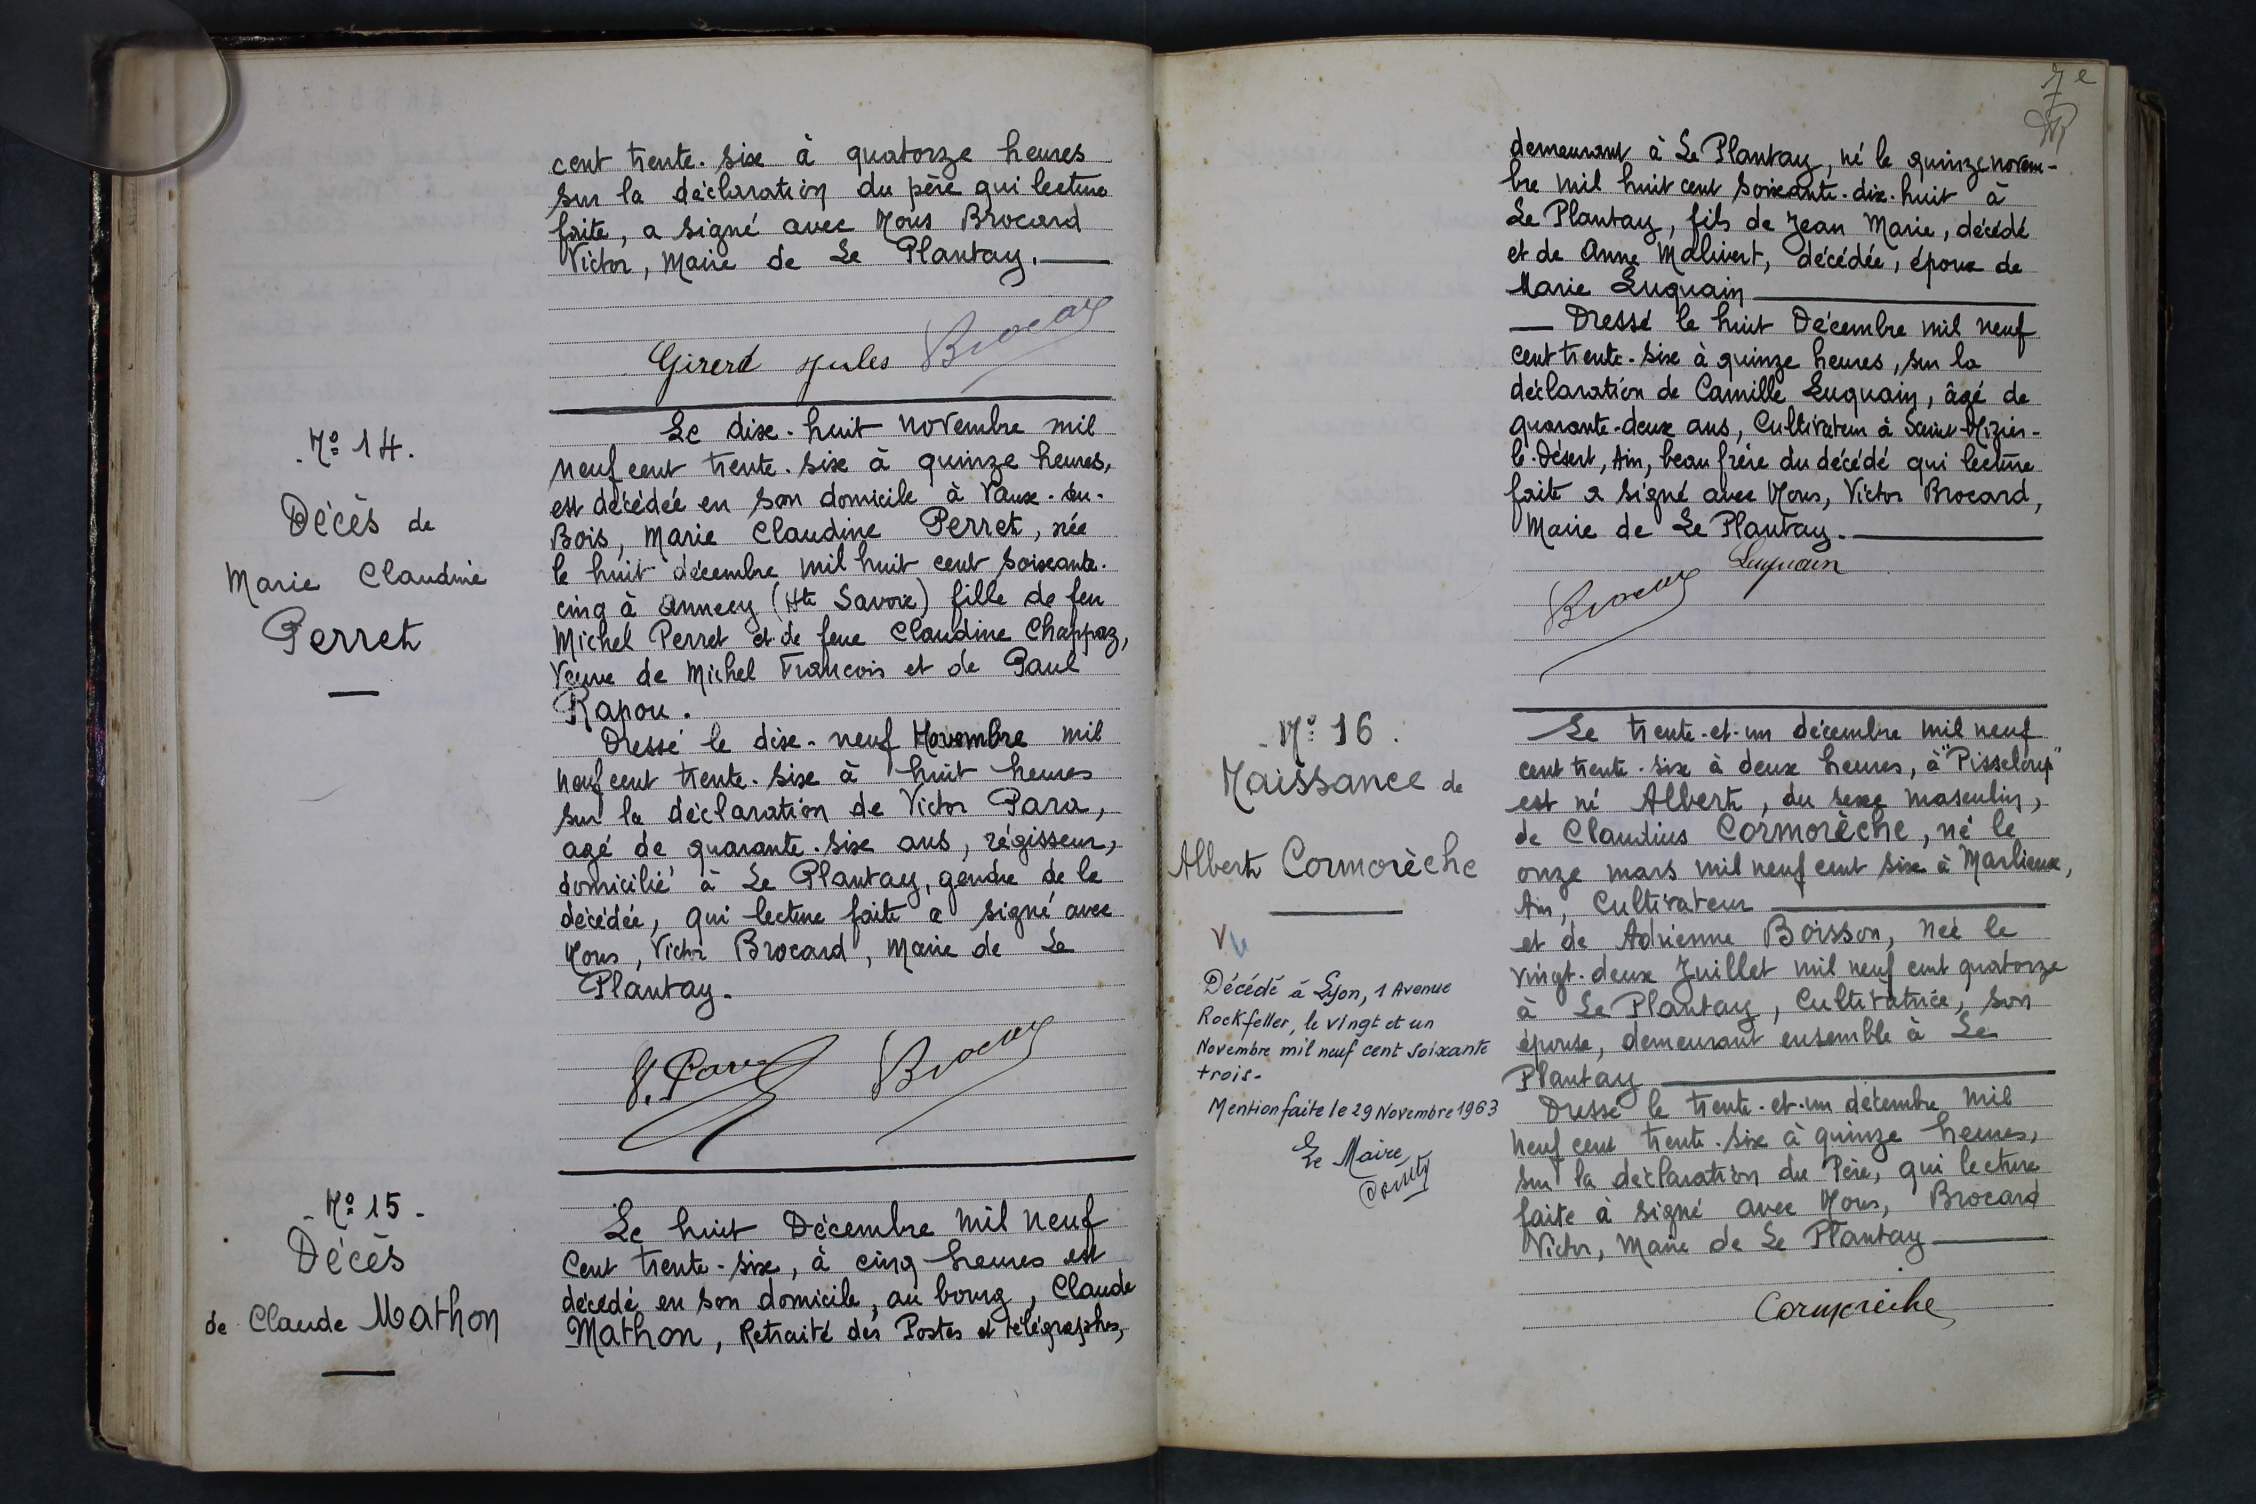 cent trente. six à quatorze heures
sur la déclaration du père qui lecture
faite, a signé avec Nous Brocard
Victor, Maire de Le Plantay.
Girerd Jules Brocard
Nº 14.
Décès de
Marie Claudine
Perret
Le dix. huit novembre mil
neuf cent trente. six à quinze heures,
est décédée en son domicile à Vaux. su.
Bois, Marie Claudine Perret, née
le huit décembre mil huit cent soixante.
cinq à Annecy (Hte Savoie) fille de feu
Michel Perret et de feue Claudine Chappaz,
Veuve de Michel Francois et de Paul
Rapou.
Dressé le dix. neuf Novembre mil
neuf cent trente. six à huit heures
sur la déclaration de Victor Para,
agé de quarante. six ans, régisseur,
domicilié à Le Plantay, gendre de la
décédée, qui lecture faite a signé avec
Nous, Victor Brocard, Maire de Le
Plantay.
V. Para Brocard
Nº 15.
Décès
de Claude Mathon
Le huit Décembre mil neuf
Cent trente. six, à cinq heures est
décédé en son domicile, au bourg, Claude
Mathon, Retraité des Postes et télégraphes,
7e
demeurant à Le Plantay, né le quinze novem-
bre mil huit cent soixante. dix. huit à
Le Plantay, fils de Jean Marie, décédé
et de Anne Malivert, décédée, époux de
Marie Luquain
Dressé le huit Décembre mil neuf
cent trente. six à quinze heures, sur la
déclaration de Camille Luquain, âgé de
quarante-deux ans, Cultivateur à Saint-Nizier-
le. Désert, Ain, beau frère du décédé qui lecture
faite a signé avec Nous, Victor Brocard,
Maire de Le Plantay.
Luquain
Brocard
Nº 16.
Naissance de
Albert Cormorèche
Vu
Décédé à Lyon, 1 Avenue
Rockfeller, le vingt et un
Novembre mil neuf cent soixante
trois.
Mention faite le 29 Novembre 1963
Le Maire
Le trente. et. un décembre mil neuf
cent trente. six à deux heures, à "Pisseloup"
est né Albert, du sexe masculin,
de Claudius Cormorèche, né le
onze mars mil neuf cent six à Marlieux,
Ain, Cultivateur
et de Adrienne Boisson, née le
vingt. deux Juillet mil neuf cent quatorze
à Le Plantay, Cultivatrice, son
épouse, demeurant ensemble à Le
Plantay
Dressé le trente. et. un décembre mil
neuf cent trente. six à quinze heures,
sur la déclaration du Père, qui lecture
faite à signé avec Nous, Brocard
Victor, Maire de Le Plantay
Cormorèche